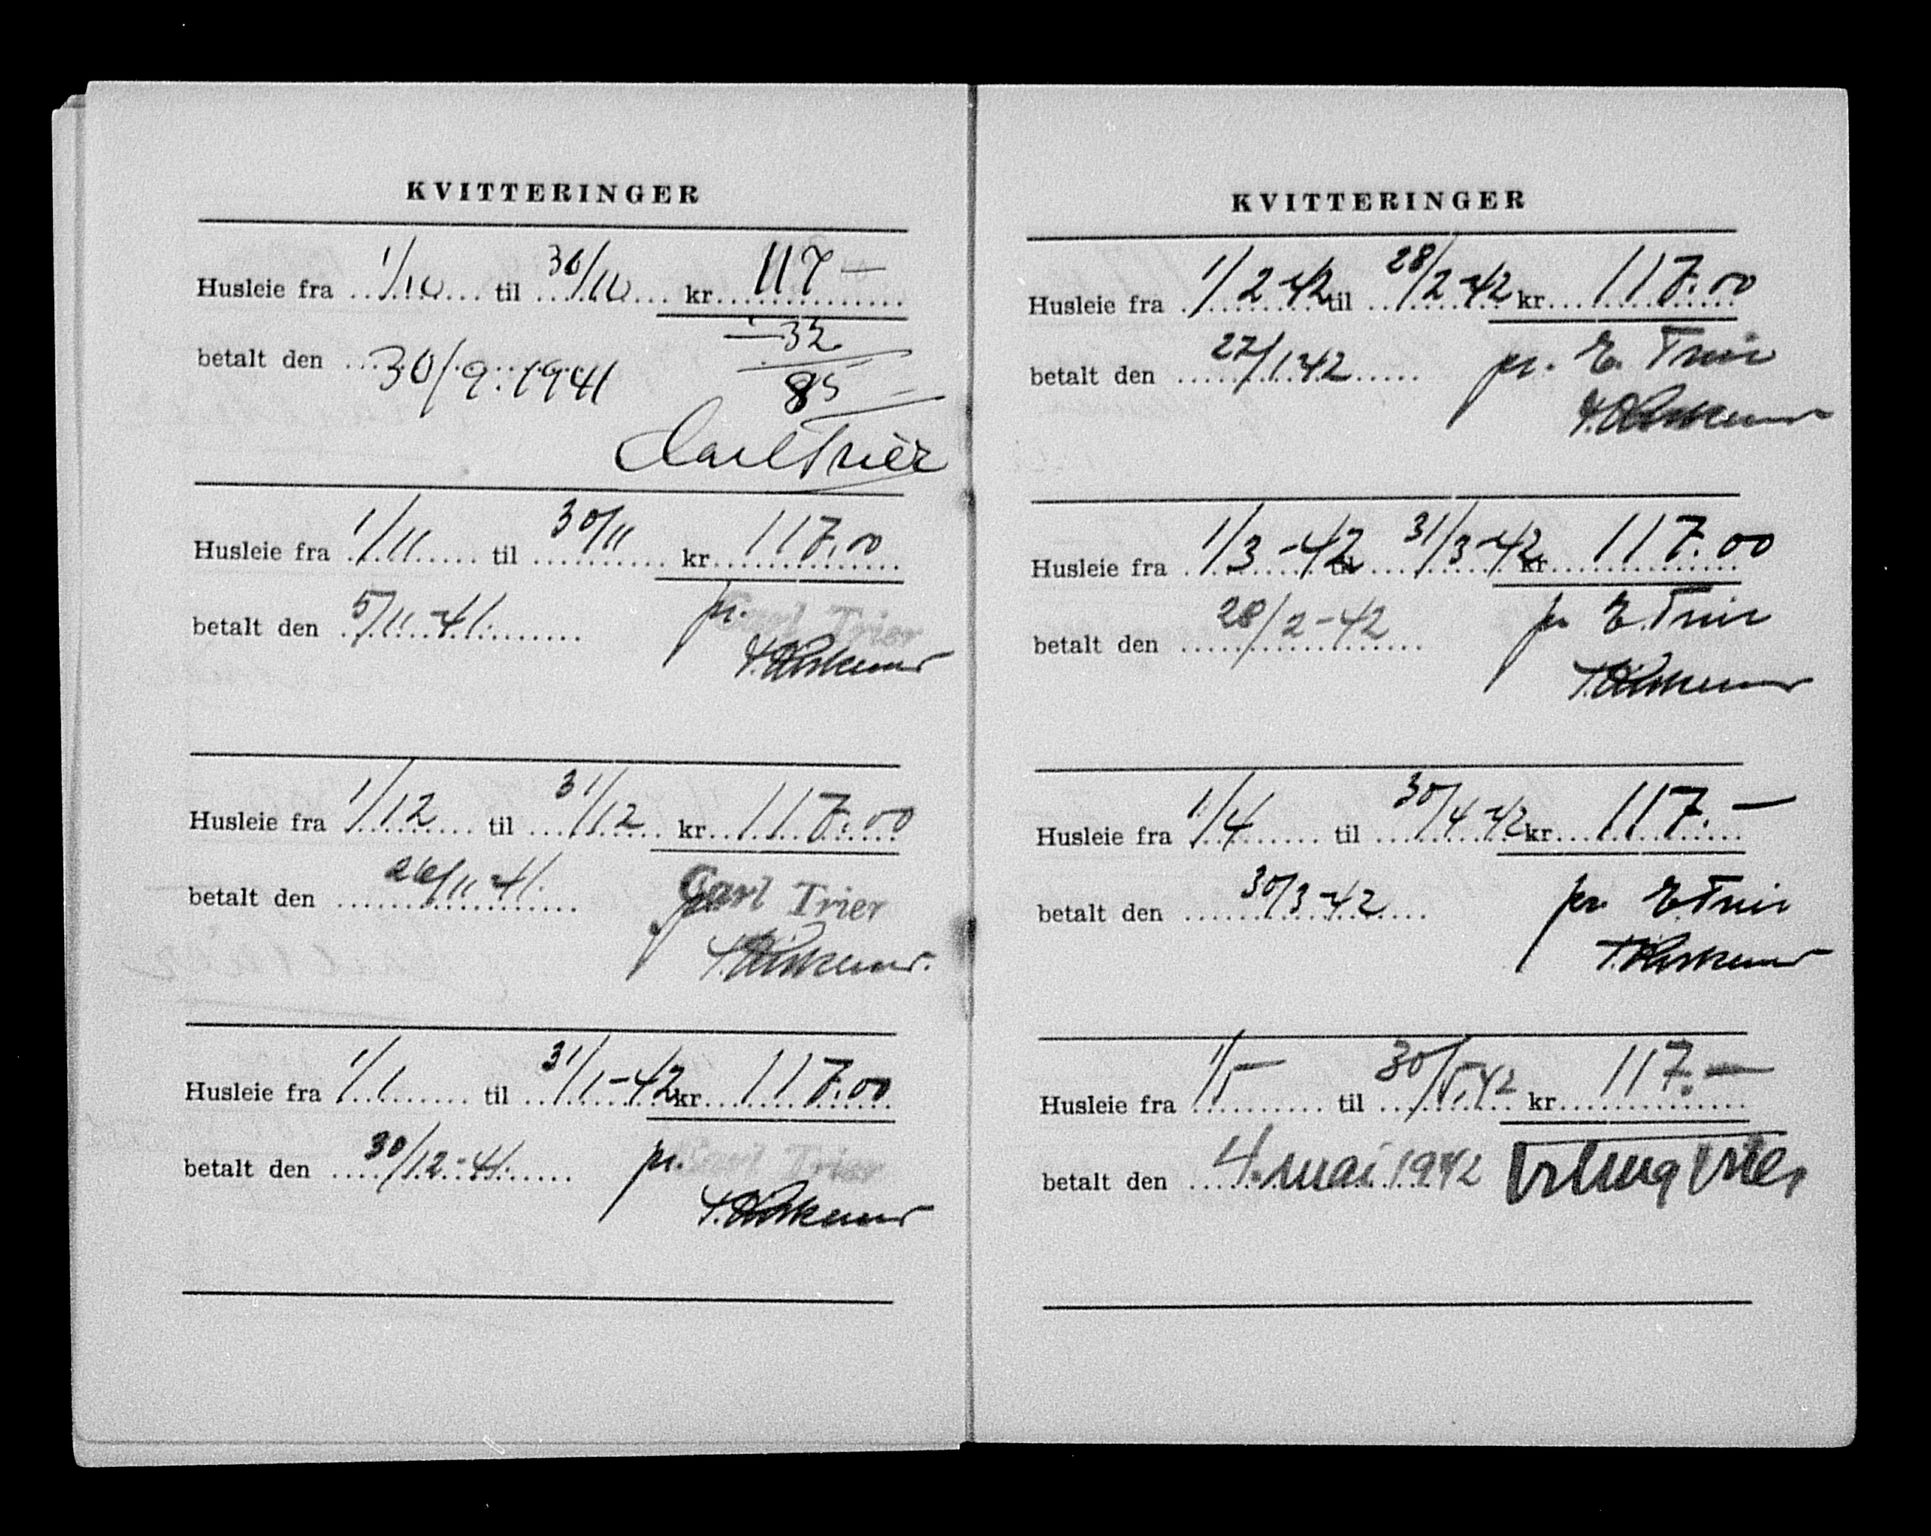 KVITTERINGER
Husleie fra 1/10 til 30/10 kr. 117 -
- 32
betalt den 30/9.1941 85 -
Carl Trier
Husleie fra 1/11 til 30/11 kr. 117.00
betalt den 5/11-41. pr. Carl Trier
Husleie fra 1/12 til 31/12 kr. 117.00
betalt den 26/11-41. pr. Carl Trier
Husleie fra 1/1 til 31/1-42 kr. 117.00
betalt den 30/12-41. pr. Carl Trier
KVITTERINGER
Husleie fra 1/2-42 til 28/2-42 kr. 117.00
betalt den 27/1-42 pr. E. Trier
Husleie fra 1/3-42 til 31/3-42 kr. 117.00
betalt den 28/2-42 pr E. Trier
Husleie fra 1/4 til 30/4-42 kr. 117.-
betalt den 30/3-42 pr E. Trier
Husleie fra 1/5 til 30/5.42 kr. 117.-
betalt den 4. mai 1942